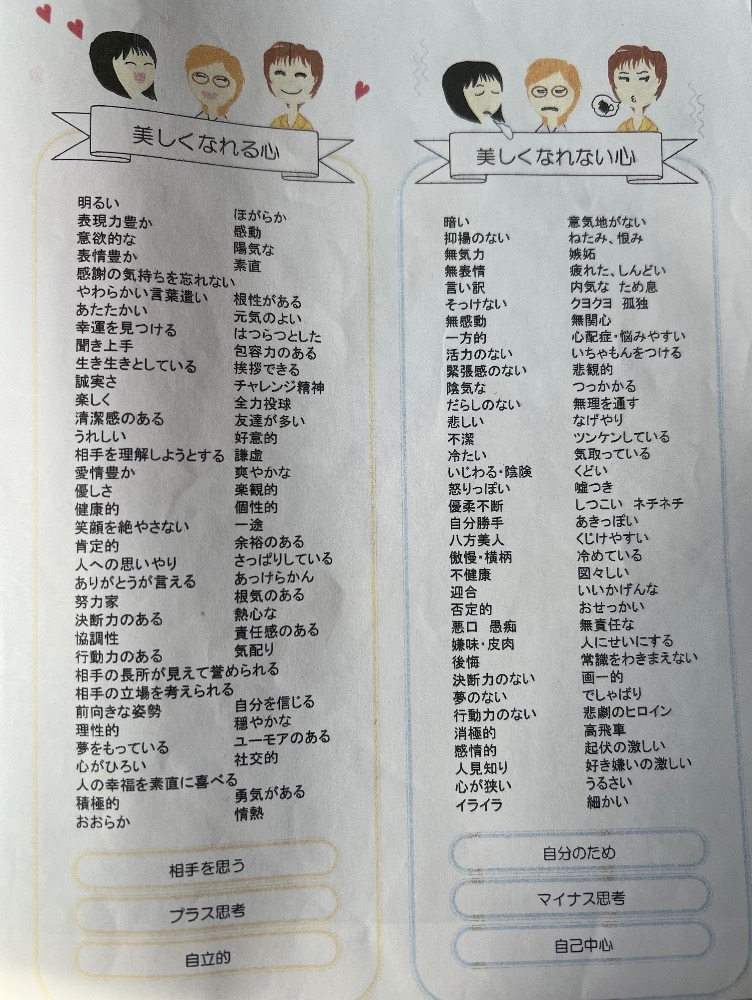 美しくなれる心
明るい
表現力豊か
意欲的な
表情豊か
感謝の気持ちを忘れない
やわらかい言葉遣い
あたたかい
幸運を見つける
聞き上手
生き生きとしている
誠実さ
楽しく
清潔感のある
うれしい
相手を理解しようとする
愛情豊か
優しさ
健康的
笑顔を絶やさない
肯定的
人への思いやり
ありがとうが言える
努力家
決断力のある
協調性
行動力のある
相手の長所が見えて誉められる
相手の立場を考えられる
前向きな姿勢
理性的
夢をもっている
心がひろい
人の幸福を素直に喜べる
積極的
おおらか
ほがらか
感動
陽気な
素直
根性がある
元気のよい
はつらつとした
包容力のある
挨拶できる
チャレンジ精神
全力投球
友達が多い
好意的
謙虚
爽やかな
楽観的
個性的
一途
余裕のある
さっぱりしている
あっけらかん
根気のある
熱心な
責任感のある
気配り
自分を信じる
穏やかな
ユーモアのある
社交的
勇気がある
情熱
相手を思う
プラス思考
自立的
美しくなれない心
暗い
抑揚のない
無気力
無表情
言い訳
そっけない
無感動
一方的
活力のない
緊張感のない
陰気な
だらしのない
悲しい
不潔
冷たい
いじわる・陰険
怒りっぽい
優柔不断
自分勝手
八方美人
傲慢・横柄
不健康
迎合
否定的
悪口 愚痴
嫌味・皮肉
後悔
決断力のない
夢のない
行動力のない
消極的
感情的
人見知り
心が狭い
イライラ
意気地がない
ねたみ、恨み
嫉妬
疲れた、しんどい
内気な ため息
クヨクヨ 孤独
無関心
心配症・悩みやすい
いちゃもんをつける
悲観的
つっかかる
無理を通す
なげやり
ツンケンしている
気取っている
くどい
嘘つき
しつこい ネチネチ
あきっぽい
くじけやすい
冷めている
図々しい
いいかげんな
おせっかい
無責任な
人にせいにする
常識をわきまえない
画一的
でしゃばり
悲劇のヒロイン
高飛車
起伏の激しい
好き嫌いの激しい
うるさい
細かい
自分のため
マイナス思考
自己中心